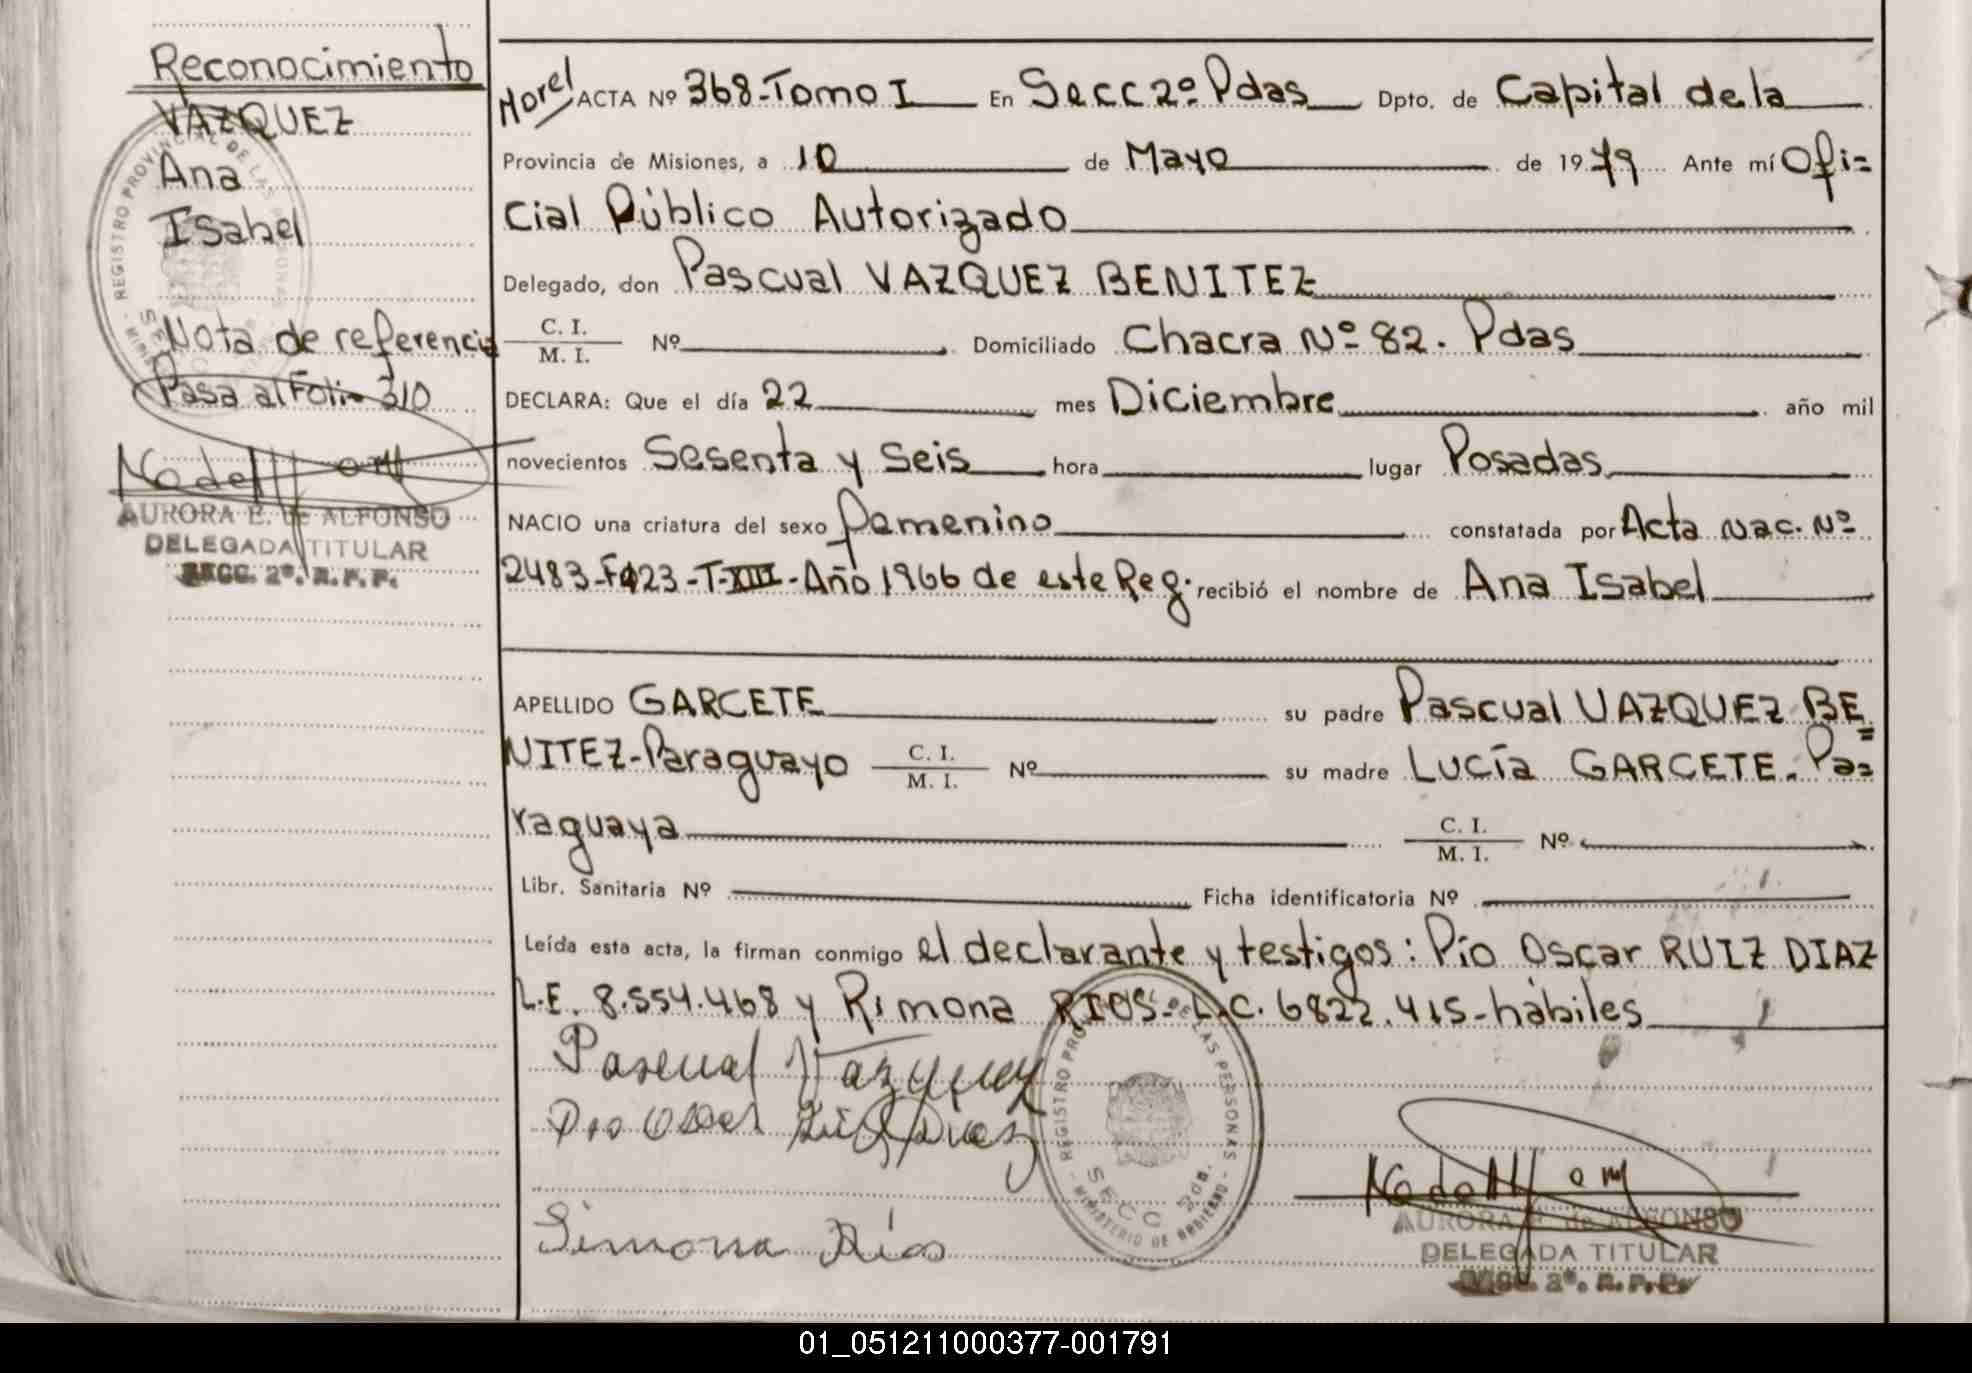 Reconocimiento
VAZQUEZ
Ana
Isabel
Nota de referencia
Pasa al Folio 310
AURORA E. de ALFONSO
DELEGADA TITULAR
SECC. 2ª. R. P. P.
Morel ACTA Nº 368-Tomo I En Secc 2º Pdas Dpto. de Capital de la
Provincia de Misiones, a 10 de Mayo de 1979 Ante mí Ofi=
cial Público Autorizado
Delegado, don Pascual VAZQUEZ BENITEZ
C. I.
M. I. Nº Domiciliado Chacra Nº 82. Pdas
DECLARA: Que el día 22 mes Diciembre año mil
novecientos Sesenta y Seis hora lugar Posadas
NACIO una criatura del sexo femenino constatada por Acta Nac. Nº
2483-Fº123-T-XIII-Año 1966 de este Reg. recibió el nombre de Ana Isabel
APELLIDO GARCETE su padre Pascual VAZQUEZ BE=
NITEZ-Paraguayo C. I. M. I. Nº su madre Lucía GARCETE. Pa=
raguaya C. I. M. I. Nº
Libr. Sanitaria Nº Ficha identificatoria Nº
Leída esta acta, la firman conmigo el declarante y testigos: Pío Oscar RUIZ DIAZ
L.E. 8.554.468 y Rimona RIOS- L.C. 6822.415-hábiles
Pascual Vazquez
Pio Oscar Ruiz Diaz
Simona Ríos
REGISTRO PROVINCIAL DE LAS PERSONAS
SECC 2da.
MINISTERIO DE GOBIERNO
AURORA E. de ALFONSO
DELEGADA TITULAR
SECC. 2ª. R. P. P.
01_051211000377-001791